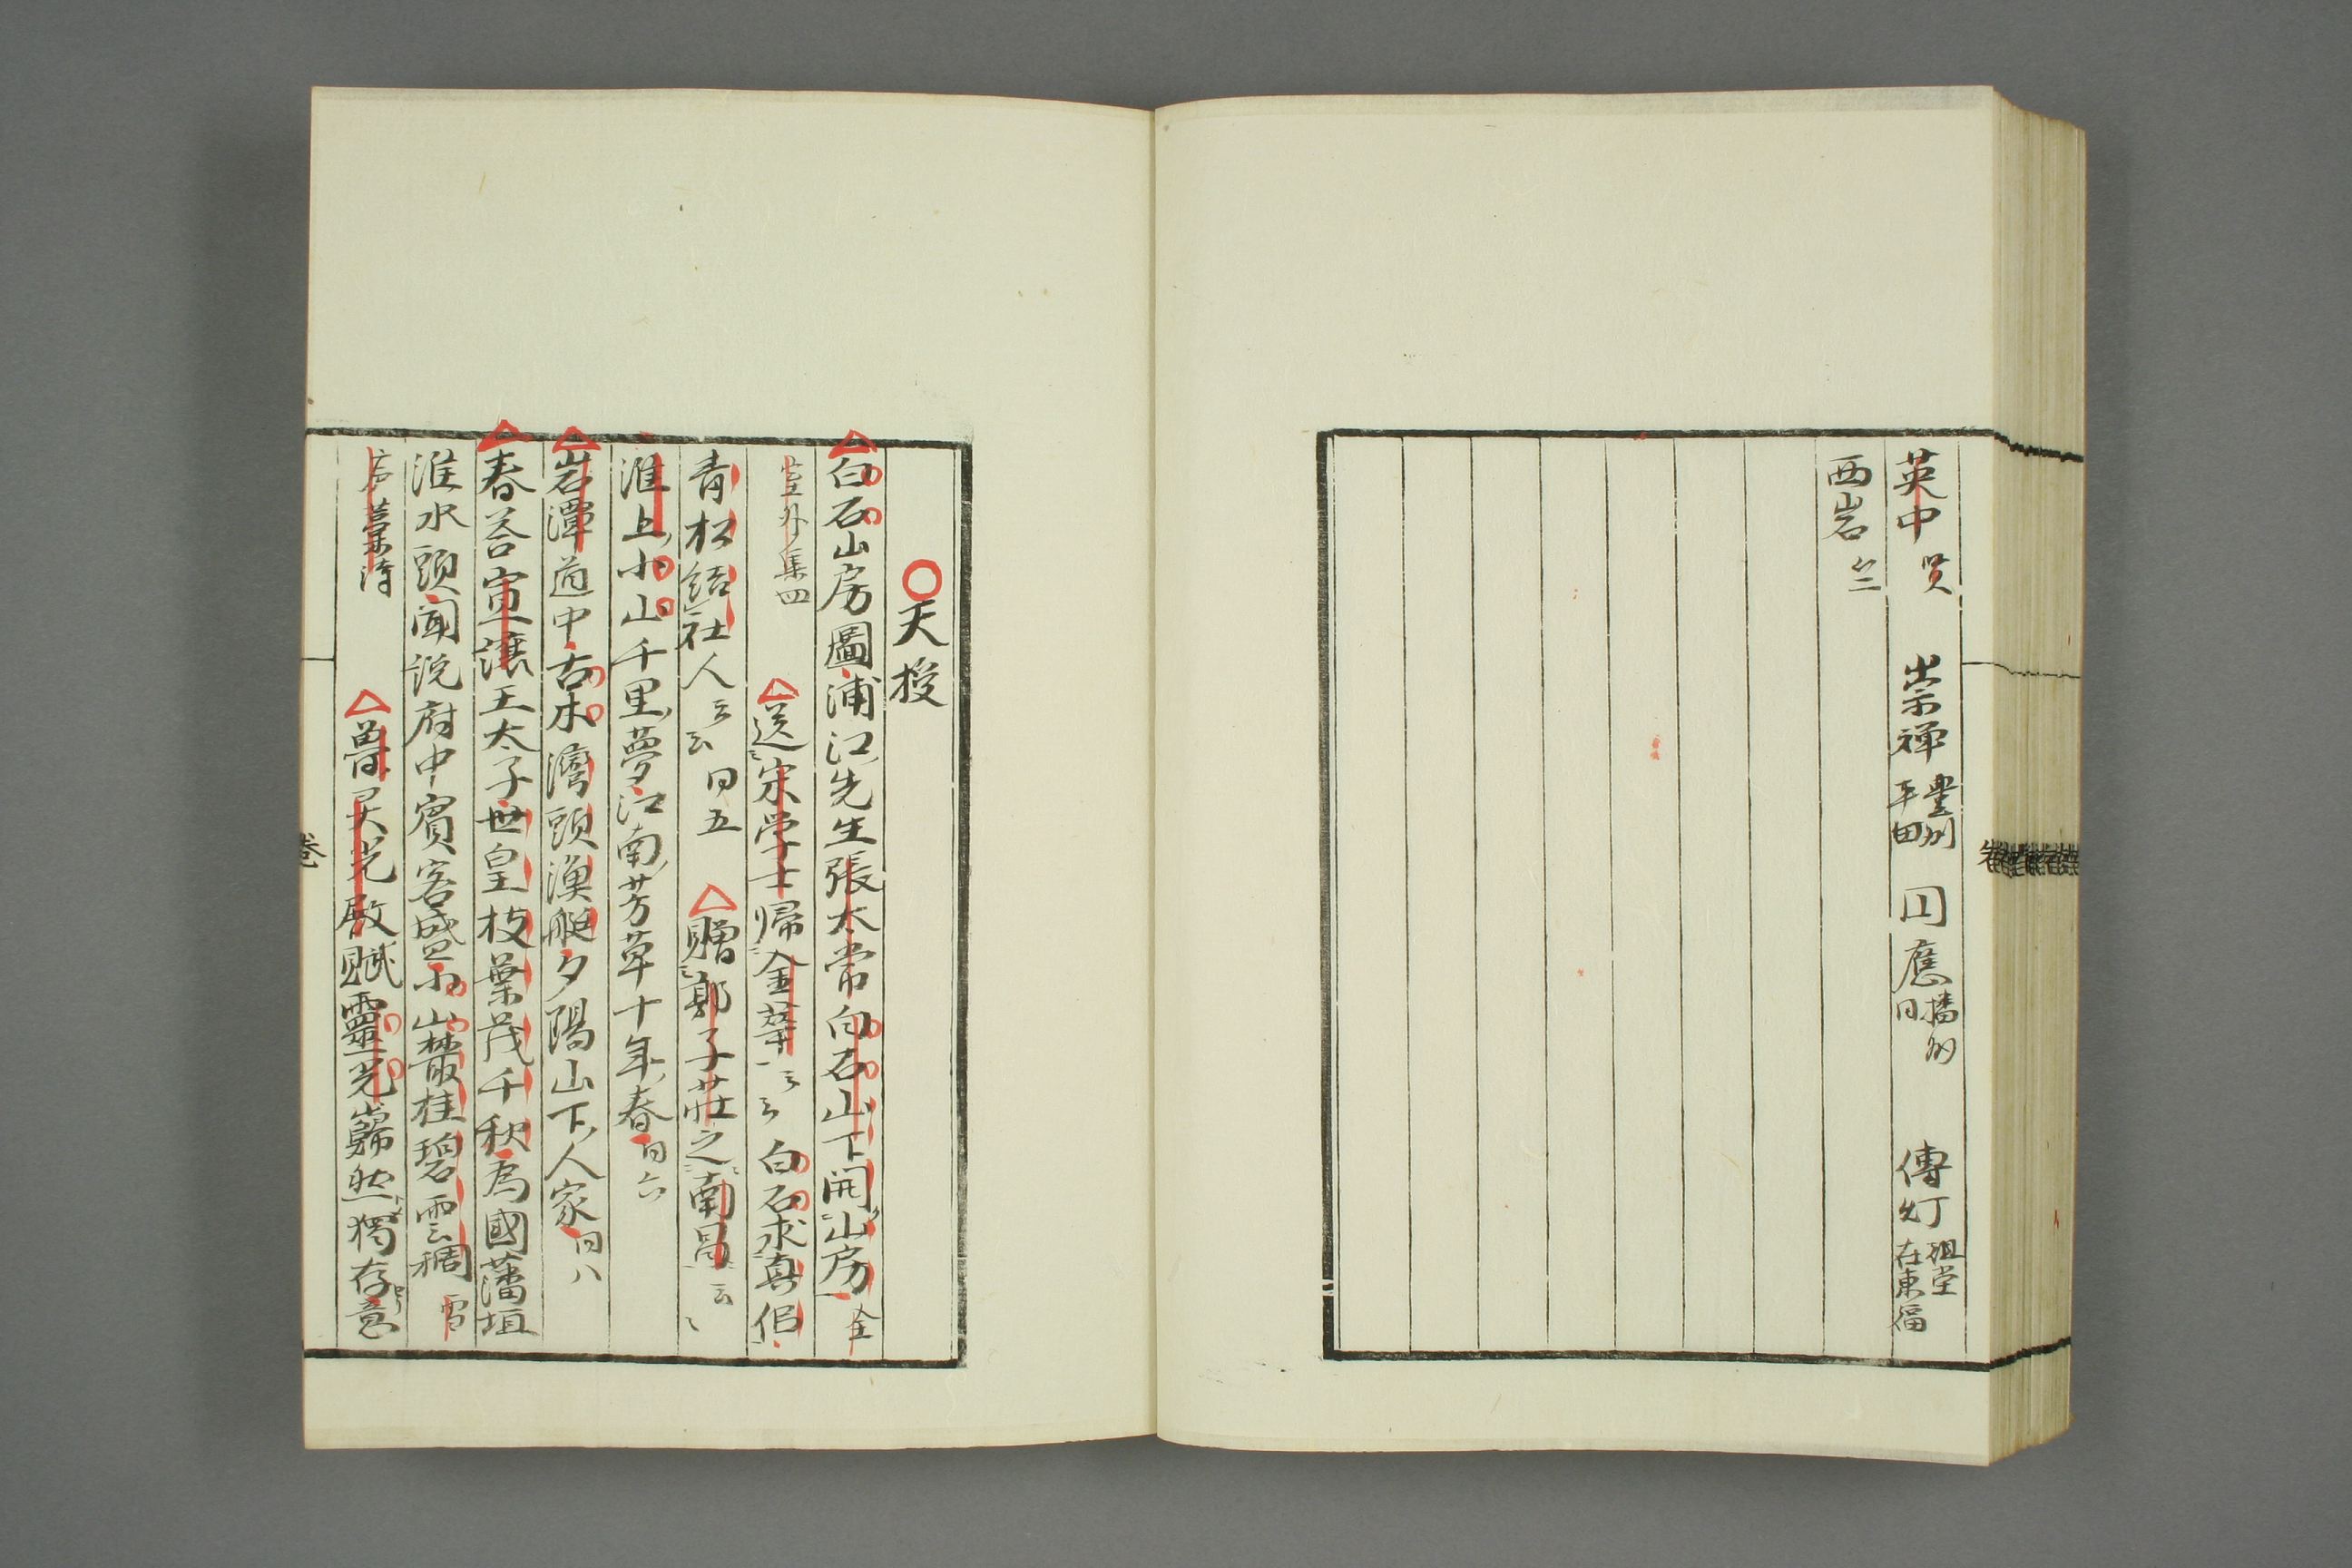 英中 賢 崇禅 豊州 平田 円應 播州 同 傳灯 祖堂 在東福
西岩
天授
白石山房圖浦江先生張太常白石山下開山房 全
室外集四 送宋学士帰金華 云云 白石求真侣
青松結社人云云 同五 贈鄭子莊之南昌云
淮上小山千里夢江南芳草十年春 同六
岩潭道中古木灣頭漁艇夕陽山下人家 同八
春荅寅讓王太子世皇枝葉茂千秋為國藩垣
淮水頭聞說府中賓客盛小山叢桂碧雲稠 雪
廬藁詩 魯灵光殿賦靈光巋然獨存意
卷